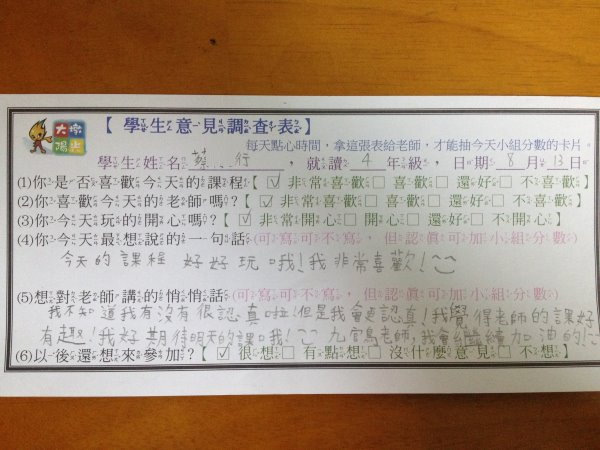 大墩
陽光
【學生意見調查表】
每天點心時間，拿這張表給老師，才能抽今天小組分數的卡片。
學生姓名 蔡 行 ，就讀 4 年級，日期 8 月 13 日
(1)你是否喜歡今天的課程【☑非常喜歡□喜歡□還好□不喜歡】
(2)你喜歡今天的老師嗎?【☑非常喜歡□喜歡□還好□不喜歡】
(3)你今天玩的開心嗎?【☑非常開心□開心□還好□不開心】
(4)你今天最想說的一句話(可寫可不寫，但認真可加小組分數)
今天的課程 好好玩哦!我非常喜歡!
(5)想對老師講的悄悄話(可寫可不寫，但認真可加小組分數)
我不知道我有沒有很認真啦!但是我會更認真!我覺得老師的課好
有趣!我好期待明天的課哦! 九官鳥老師,我會繼續加油的!
(6)以後還想來參加?【☑很想□有點想□沒什麼意見□不想】